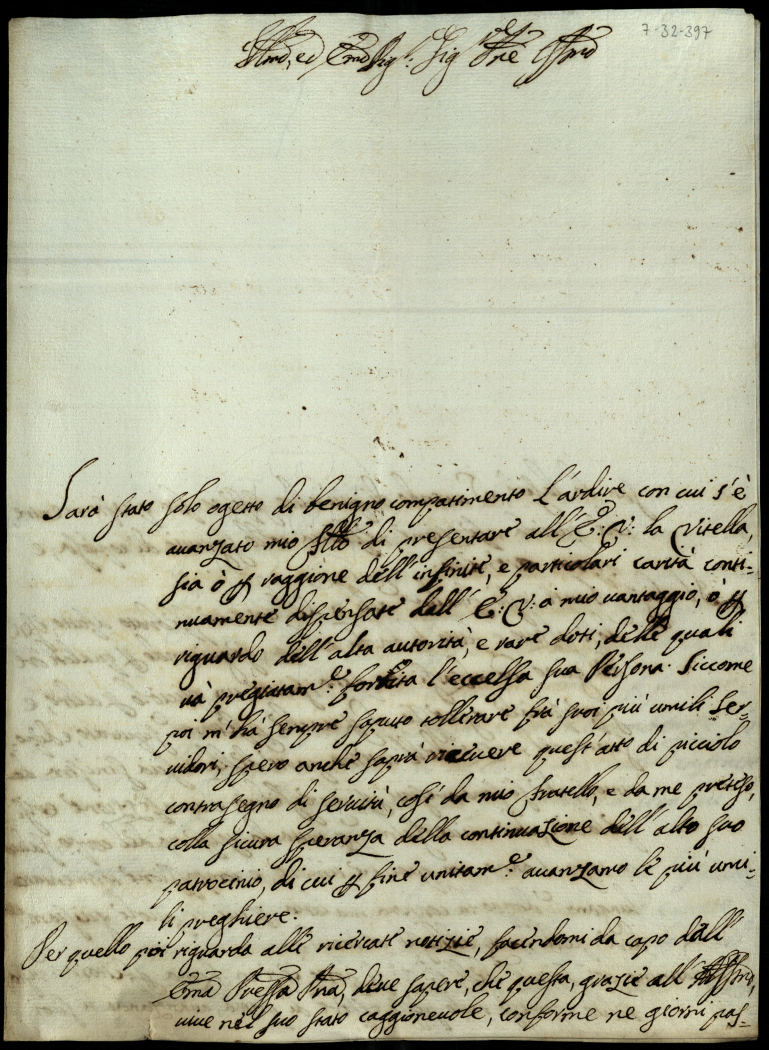 7-32-397
Illmo, ed Eccmo Sig.r: Sig.r Pne
Sarà stato solo ogetto di benigno compatimento l'ardire con cui s'è
auanzato mio di presentare all' E: V: la Vitella,
sia ò p raggione dell'infinite, e particolari carità conti-
nuamente dispensate dell' E: V: à mio uantaggio, ò p
riguardo dell'alta autorità, e rare doti, delle quali
uà pregiatam.e fornita l'eccelsa sua Persona. Siccome
poi m'hà sempre saputo tollerare frà suoi più umili Ser-
uidori, spero anche saprà riceuere quest'atto di picciolo
contrasegno di seruitù, così da mio fratello, e da me preteso,
colla sicura speranza della continuazione dell'alto suo
patrocinio, di cui p fine unitam.e auanzamo le più umi-
li preghiere.
Per quello poi riguarda alle ricercate notizie, facendomi da capo dall'
Pna, deue sapere, che questa, grazie all'
uiue nel suo stato caggioneuole, conforme ne giorni pas-